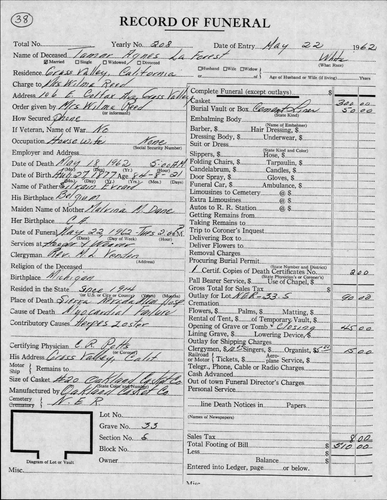 38
RECORD OF FUNERAL
Total No. Yearly No. 208 Date of Entry May 22 1962
Name of Deceased Agnes La Forest White
Married Single Widowed Divorced Husband Wife Widow (What Race)
Residence Grass Valley, California of Age of Husband or Wife (if living) Years
Charge to Mrs Wilma Reed
Address 146 E Grass Valley
Order given by Mrs Wilma Reed
(or informant)
How Secured Phone
If Veteran, Name of War No
Occupation Housewife None
(Social Security Number)
Employer and Address
Date of Death May 18, 1962 5:00 AM
Date of Birth Aug 27 1877 Age 84-8-21
Name of Father
His Birthplace Belgium
Maiden Name of Mother
Her Birthplace
Date of Funeral May 22, 1962
Services at
Clergyman Rev.
Religion of the Deceased
Birthplace Michigan
Resided in the State Since 1914
(U.S. or City or County)
Place of Death
Cause of Death Myocardial Failure
Contributory Causes Herpes Zoster
Certifying Physician
(or Coroner)
His Address Grass Valley Calif
Motor
Ship
(Name of Cemetery)
Size of Casket Oakland Casket Co
(State Type)
Manufactured by Oakland Casket Co
Cemetery
Crematory
Lot No.
Grave No. 33
Section No. 5
Block No.
Owner
Diagram of Lot or Vault
Misc.
Complete Funeral (except outlays) $
Casket 300 00
Burial Vault or Box Cement Liner 50 00
(State Kind)
Embalming Body
Barber, $ Hair Dressing, $
Dressing Body, $ Underwear, $
Suit or Dress
(State Kind and Color)
Slippers, $ Hose, $
Folding Chairs, $ Tarpaulin, $
Candelabrum, $ Candles, $
Door Spray, $ Gloves, $
Funeral Car, $ Ambulance, $
Limousines to Cemetery @ $
Extra Limousines @ $
Autos to R. R. Station @ $
Getting Remains from
Taking Remains to
Trip to Coroner's Inquest
Delivering Box to
Deliver Flowers to
Removal Charges
Procuring Burial Permit
(State Number and District)
1 Certif. Copies of Death Certificates No. 2 00
(State Physician's or Coroner's)
Pall Bearer Service, $ Use of Chapel, $
Gross Total for Sales Tax $
Outlay for Lot 33-5 90 00
(State Kind)
Flowers, $ Palms, $ Matting, $
Rental of Tent, $ of Temporary Vault, $
Opening of Grave or Tomb & Closing 45 00
Lining Grave, $ Lowering Device, $
Outlay for Shipping Charges
Clergymen, $ 10 Singers, $ Organist, $ 5 15 00
Railroad or Motor $ Tickets, $ Aeroplane Service, $
Telegr., Phone, Cable or Radio Charges
Cash Advanced
Out of town Funeral Director's Charges
Personal Services
line Death Notices in Papers
(Names of Newspapers)
Sales Tax 8 00
Total Footing of Bill $ 510 00
Less
Balance $
Entered into Ledger, page or below.
Misc